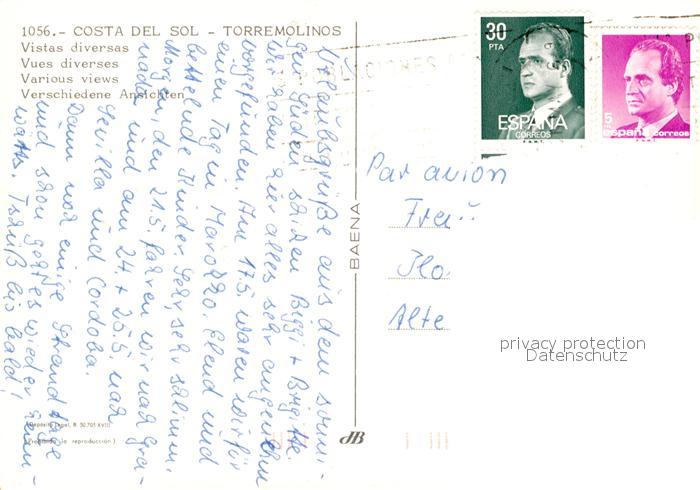 1056.- COSTA DEL SOL - TORREMOLINOS
Vistas diversas
Vues diverses
Various views
Verschiedene Ansichten
30
PTA
ESPAÑA
CORREOS
F.N.M.T.
5
PTS
españa correos
F.N.M.T.
Urlaubsgrüße aus dem sonni-
gen Süden schicken Biggi + Brigitte.
Wir haben hier alles sehr angenehm
vorgefunden. Am 17.5. waren wir für
einen Tag in Marokko. Elend und
bettelnde Kinder. Sehr, sehr schlimm.
Morgen, den 21.5. fahren wir nach Gra-
nada und am 24. + 25.5. nach
Sevilla und Cordoba.
Dann noch einige Strandtage
und schon geht es wieder heim-
wärts. Tschüß bis bald!
BAENA
Par avion
Frau
Ilo
Alte
privacy protection
Datenschutz
Depósito Legal, B. 50.701 XVIII
(Prohibida la reproducción)
dB